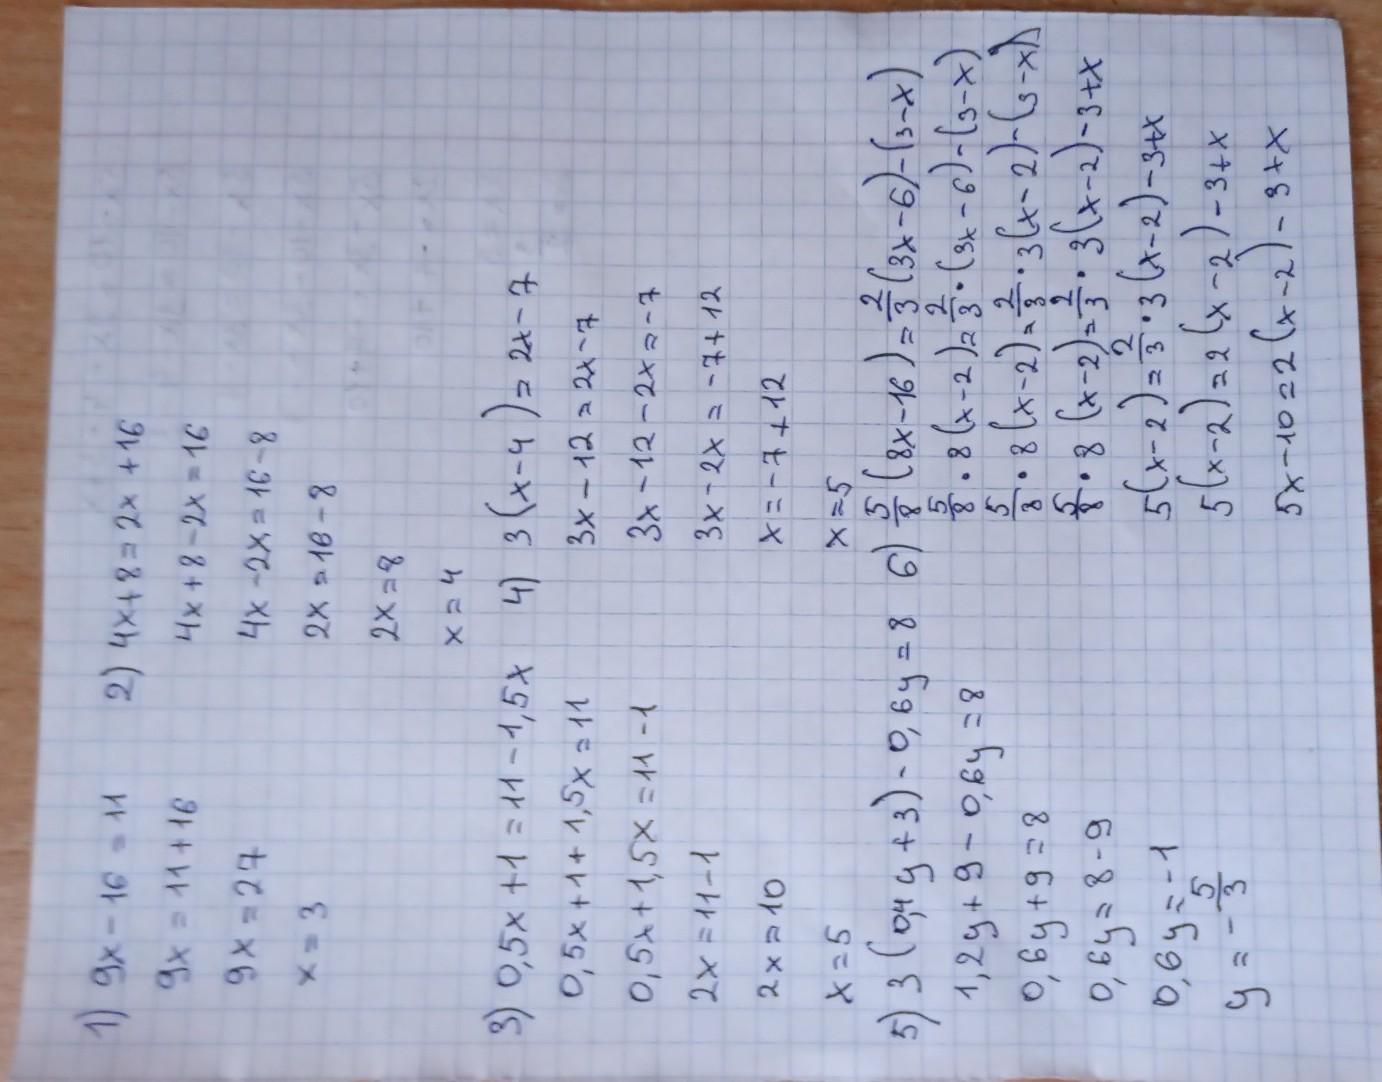 1) 9x - 16 = 11
9x = 11 + 16
9x = 27
x = 3
2) 4x + 8 = 2x + 16
4x + 8 - 2x = 16
4x - 2x = 16 - 8
2x = 16 - 8
2x = 8
x = 4
3) 0,5x + 1 = 11 - 1,5x
0,5x + 1 + 1,5x = 11
0,5x + 1,5x = 11 - 1
2x = 11 - 1
2x = 10
x = 5
4) 3(x - 4) = 2x - 7
3x - 12 = 2x - 7
3x - 12 - 2x = -7
3x - 2x = -7 + 12
x = -7 + 12
x = 5
5) 3(0,4y + 3) - 0,6y = 8
1,2y + 9 - 0,6y = 8
0,6y + 9 = 8
0,6y = 8 - 9
0,6y = -1
y = -5/3
6) 5/8(8x - 16) = 2/3(3x - 6) - (3 - x)
5/8 · 8(x - 2) = 2/3 · (3x - 6) - (3 - x)
5/8 · 8(x - 2) = 2/3 · 3(x - 2) - (3 - x)
5/8 · 8(x - 2) = 2/3 · 3(x - 2) - 3 + x
5(x - 2) = 2/3 · 3(x - 2) - 3 + x
5(x - 2) = 2(x - 2) - 3 + x
5x - 10 = 2(x - 2) - 3 + x